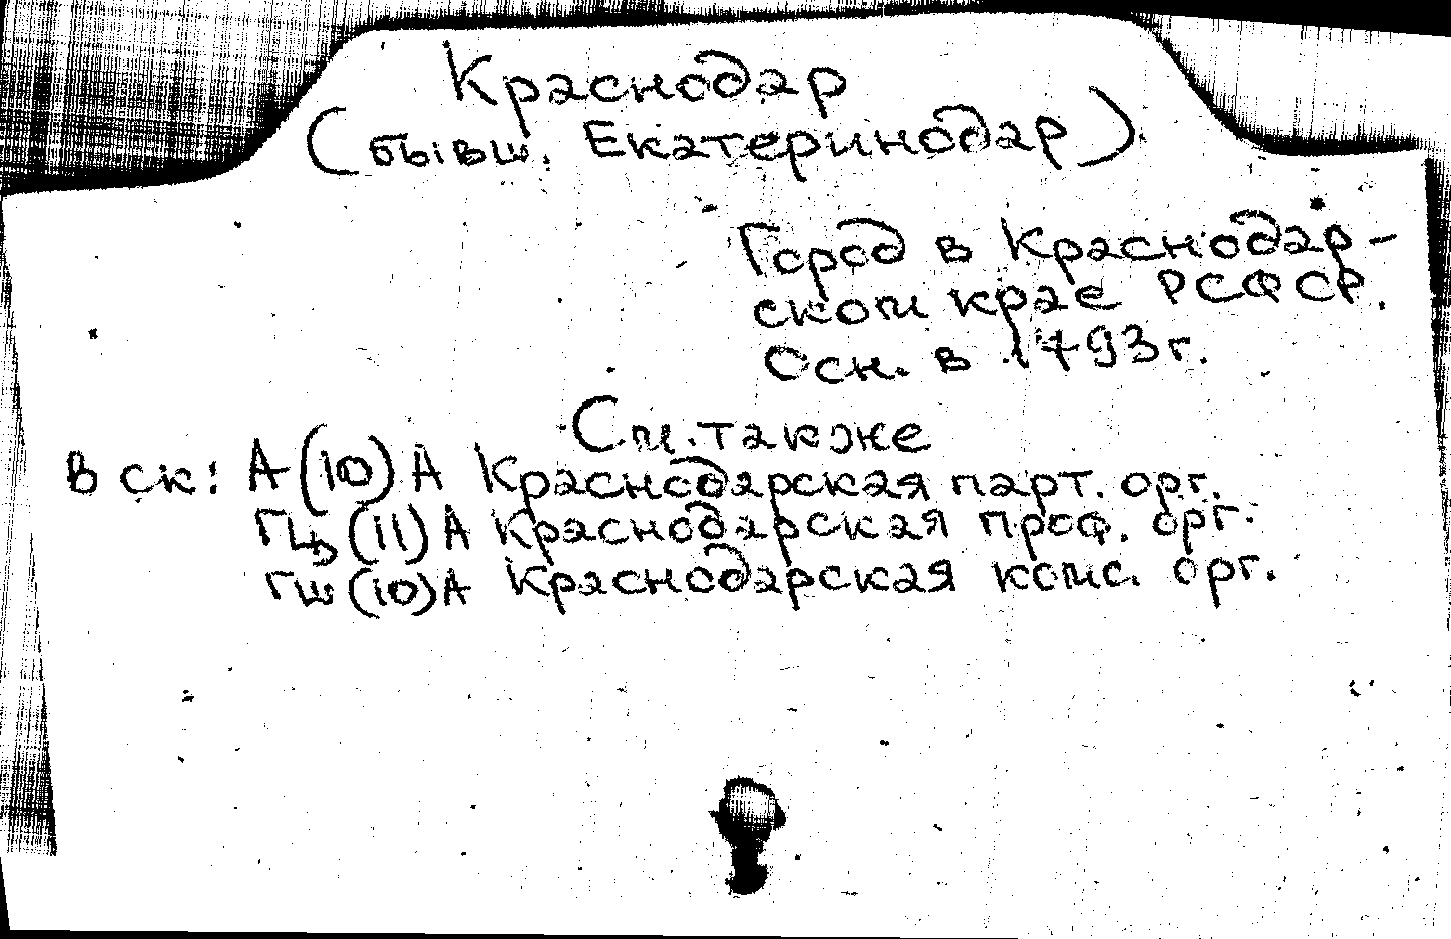 Краснодар
(бывш. Екатеринодар)
Город в Краснодар-
ском крае РСФСР.
Осн. в 1793г.
См. также
В ск: А(10)А Краснодарская парт. орг.
ГЦ5(11)А Краснодарская проф. орг.
ГШ(10)А Краснодарская комс. орг.